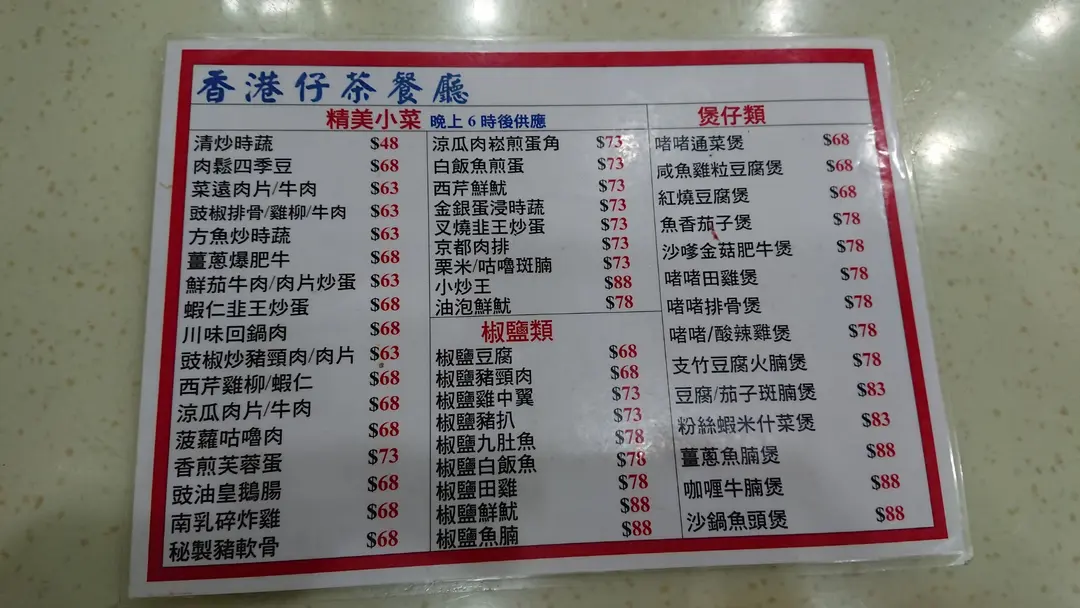 香港仔茶餐廳
精美小菜 晚上6時後供應
清炒時蔬 $48
肉鬆四季豆 $68
菜遠肉片/牛肉 $63
豉椒排骨/雞柳/牛肉 $63
方魚炒時蔬 $63
薑蔥爆肥牛 $68
鮮茄牛肉/肉片炒蛋 $63
蝦仁韭王炒蛋 $68
川味回鍋肉 $68
豉椒炒豬頸肉/肉片 $63
西芹雞柳/蝦仁 $68
涼瓜肉片/牛肉 $68
菠蘿咕嚕肉 $68
香煎芙蓉蛋 $73
豉油皇鵝腸 $68
南乳碎炸雞 $68
秘製豬軟骨 $68
涼瓜肉崧煎蛋角 $73
白飯魚煎蛋 $73
西芹鮮魷 $73
金銀蛋浸時蔬 $73
叉燒韭王炒蛋 $73
京都肉排 $73
栗米/咕嚕斑腩 $73
小炒王 $88
油泡鮮魷 $78
椒鹽類
椒鹽豆腐 $68
椒鹽豬頸肉 $68
椒鹽雞中翼 $73
椒鹽豬扒 $73
椒鹽九肚魚 $78
椒鹽白飯魚 $78
椒鹽田雞 $78
椒鹽鮮魷 $88
椒鹽魚腩 $88
煲仔類
啫啫通菜煲 $68
咸魚雞粒豆腐煲 $68
紅燒豆腐煲 $68
魚香茄子煲 $78
沙嗲金菇肥牛煲 $78
啫啫田雞煲 $78
啫啫排骨煲 $78
啫啫/酸辣雞煲 $78
支竹豆腐火腩煲 $78
豆腐/茄子斑腩煲 $83
粉絲蝦米什菜煲 $83
薑蔥魚腩煲 $88
咖喱牛腩煲 $88
沙鍋魚頭煲 $88